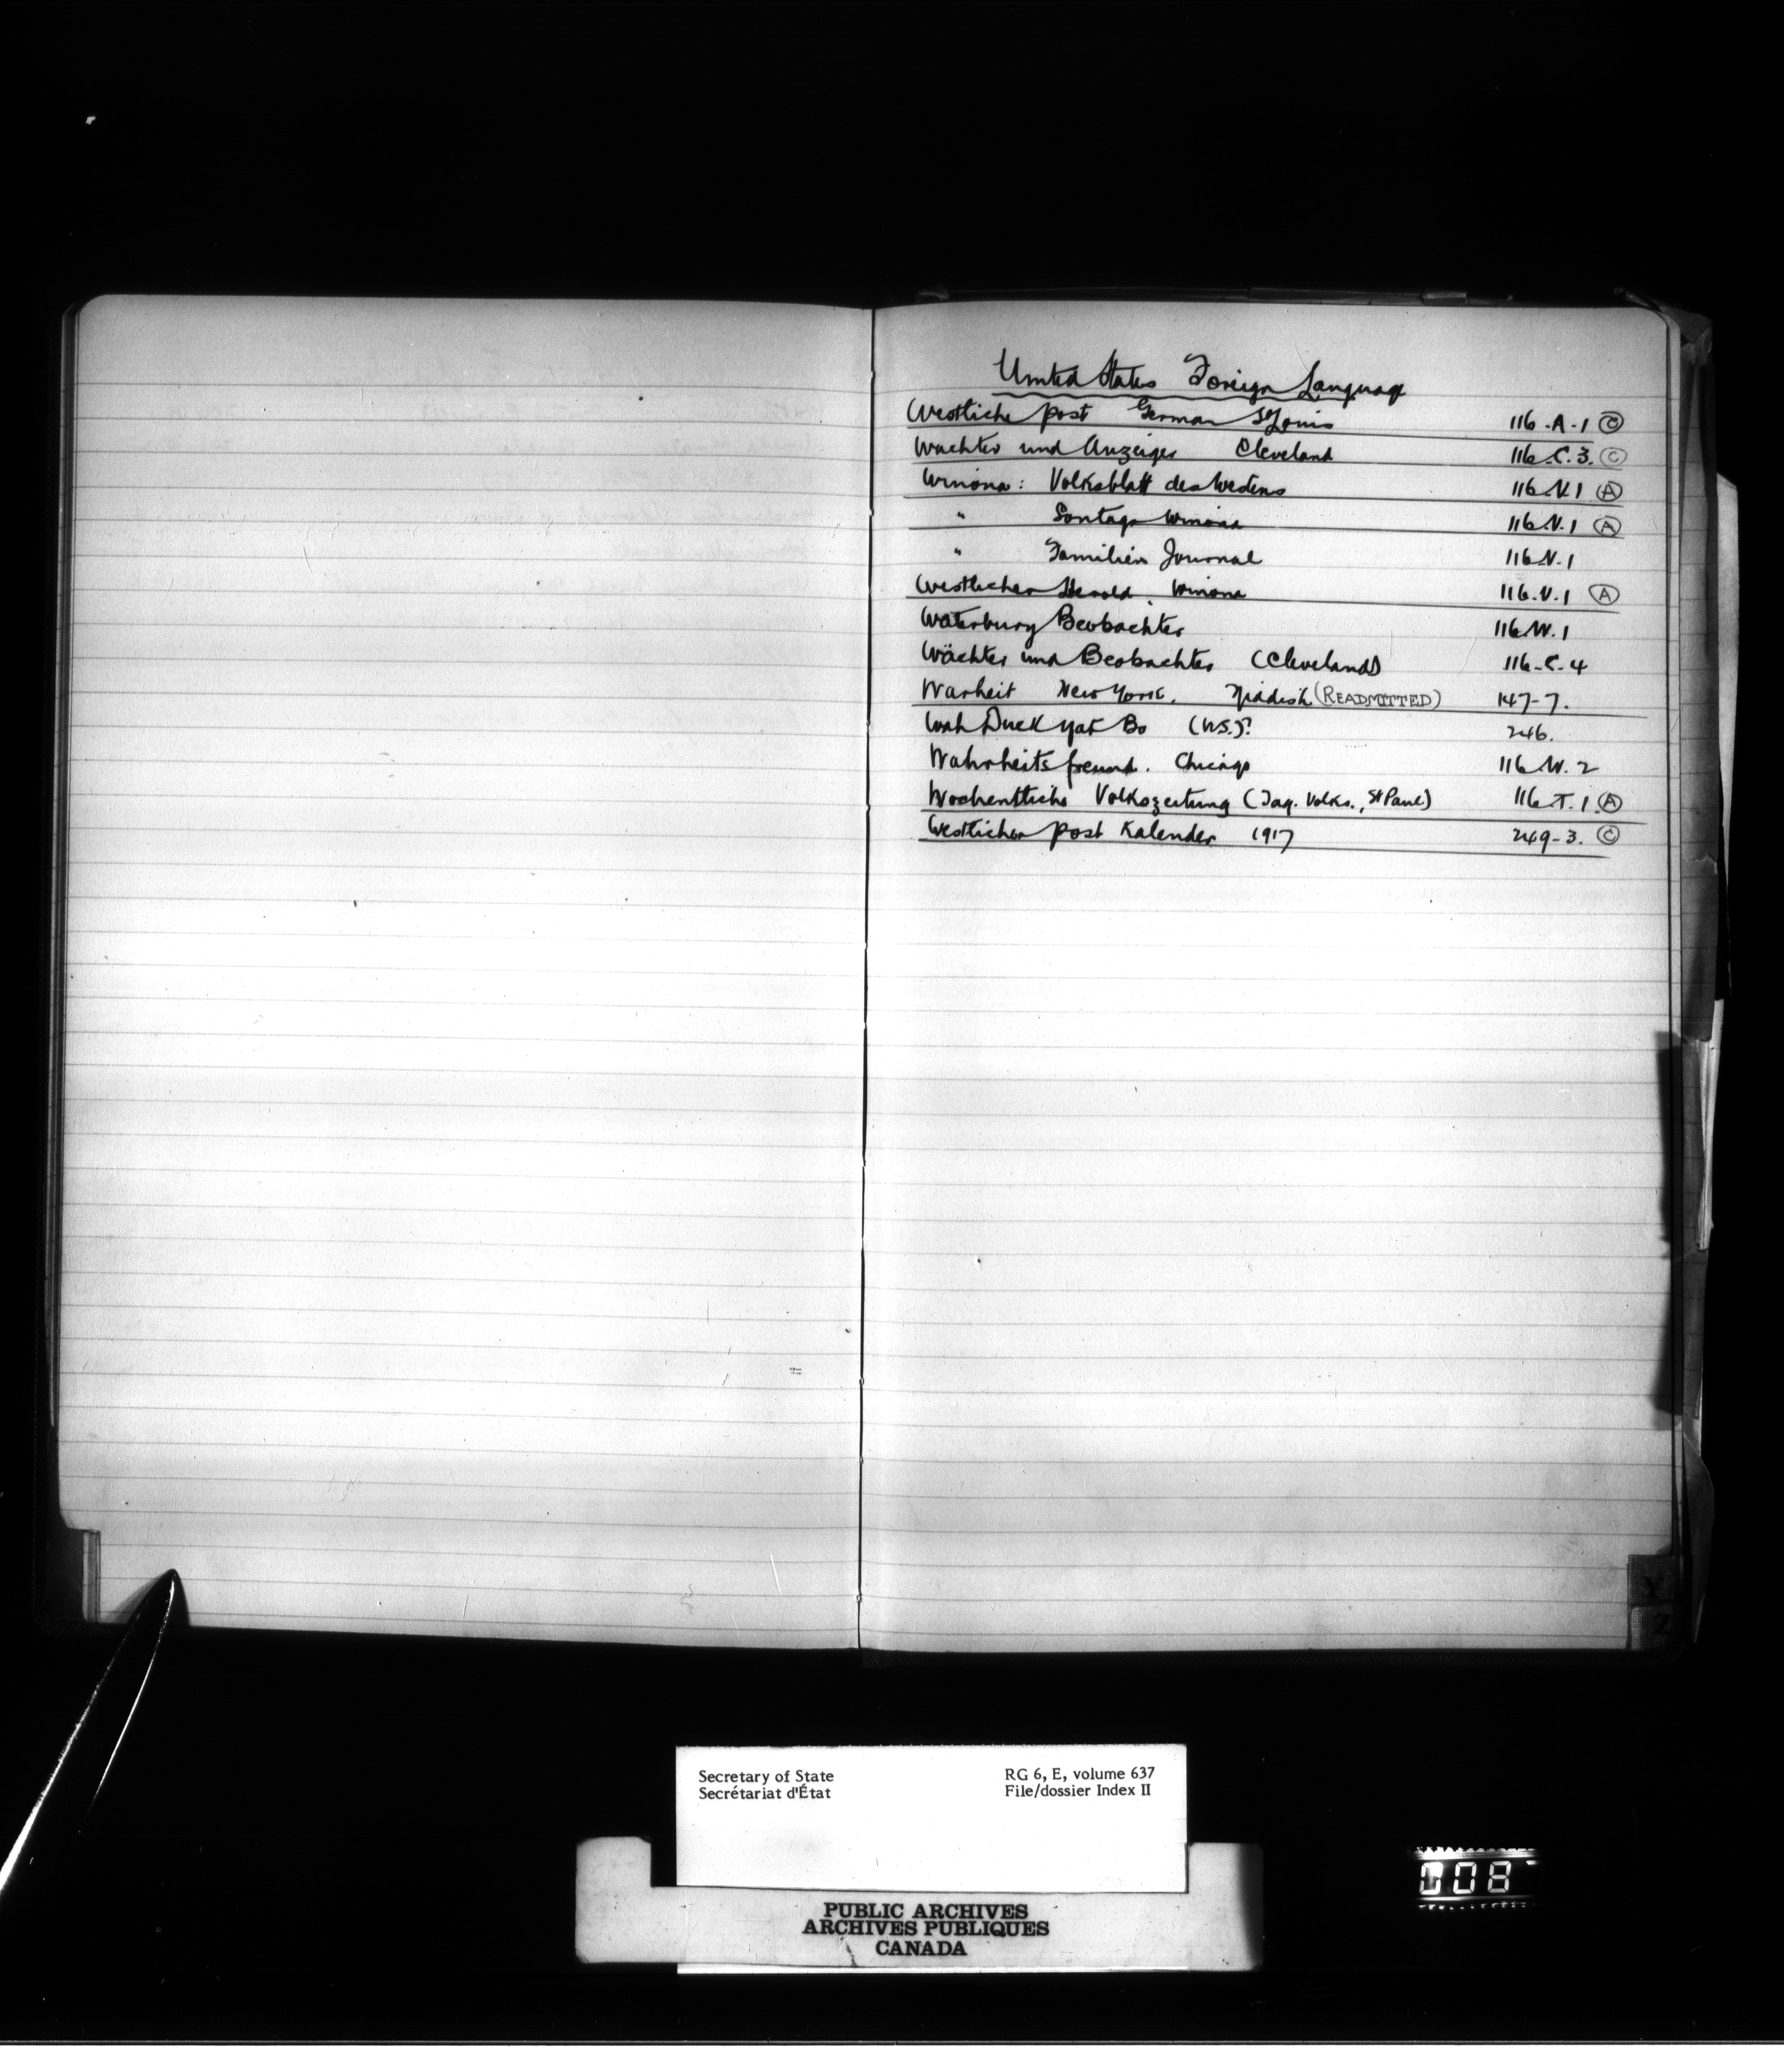 United States Foreign Language
Westliche post German St Louis 116-A-1 C
Wachter und Anzeiger Cleveland 116.C.3. C
Winona: Volksblatt des Westens 116.V.1 A
" Sontags Winona 116.V.1 A
" Familien Journal 116.V.1
Westlicher Herold. Winona 116.V.1 A
Waterbury Beobachter 116.W.1
Wächter und Beobachter (Cleveland) 116-C-4
Warheit New York. Yiddish (READMITTED) 147-7.
Wah Duck Yat Bo (U.S.)? 246.
Wahrheitsfreund. Chicago 116.W.2
Wochentliche Volkszeitung (Tag. Volks., St Paul) 116.T.1. A
Westlichen post Kalender 1917 249-3. C
X
Z
Secretary of State RG 6, E, volume 637
Secrétariat d'État File/dossier Index II
PUBLIC ARCHIVES
ARCHIVES PUBLIQUES
CANADA
008